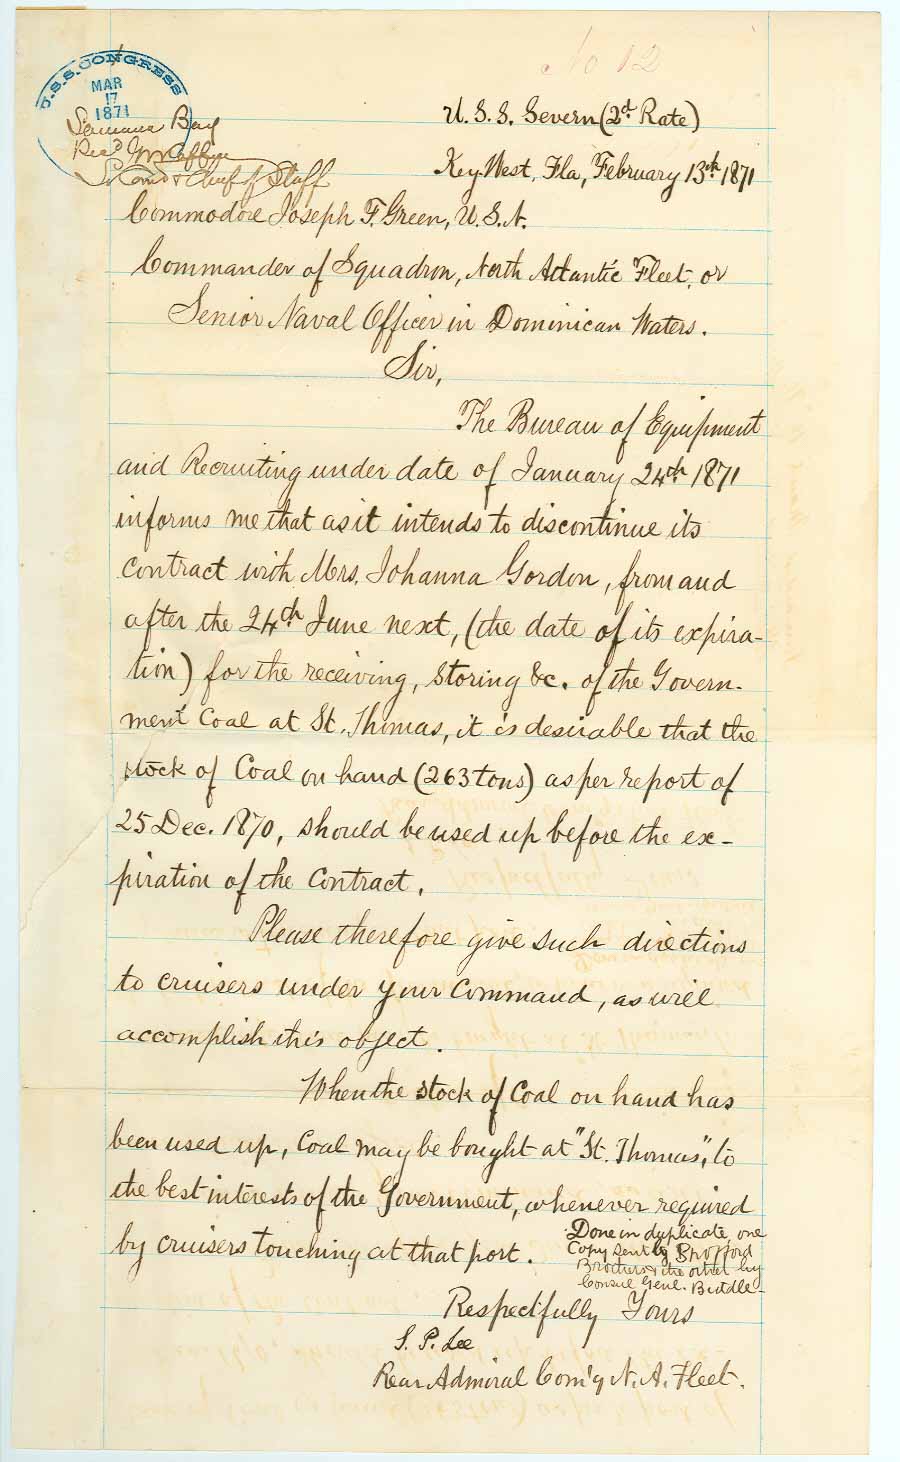 No 12
U.S.S. CONGRESS
MAR
17
1871
Samana Bay
Rec'd
Comd & Chief of Staff
U.S.S. Severn (2d. Rate)
Key West, Fla, February 13th. 1871
Commodore Joseph F. Green, U.S.N.
Commander of Squadron, North Atlantic Fleet, or
Senior Naval Officer in Dominican Waters.
Sir,
The Bureau of Equipment
and Recruiting under date of January 24th. 1871
informs me that as it intends to discontinue its
contract with Mrs. Johanna Gordon, from and
after the 24th. June next, (the date of its expira-
tion) for the receiving, storing &c. of the Govern-
ment Coal at St. Thomas, it is desirable that the
stock of Coal on hand (263 tons) as per report of
25 Dec. 1870, should be used up before the ex-
piration of the Contract.
Please therefore give such directions
to cruisers under your Command, as will
accomplish this object.
When the stock of Coal on hand has
been used up, Coal may be bought at "St. Thomas", to
the best interests of the Government, whenever required
by cruisers touching at that port.
Done in duplicate, one
Copy sent by Spofford
Brothers & the other by
Consul Genl. Biddle-
Respectfully Yours
S. P. Lee
Rear Admiral Com'g N. A. Fleet.